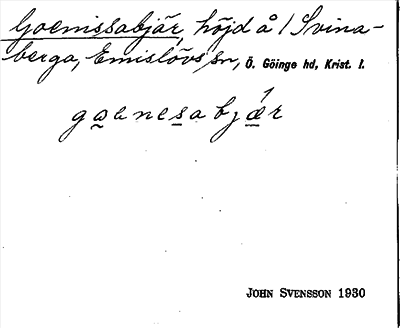 Goenissabjär, höjd å / Svina-
berga, Emislövs sn, Ö. Göinge hd, Krist. l.
gaenesabjær
JOHN SVENSSON 1930